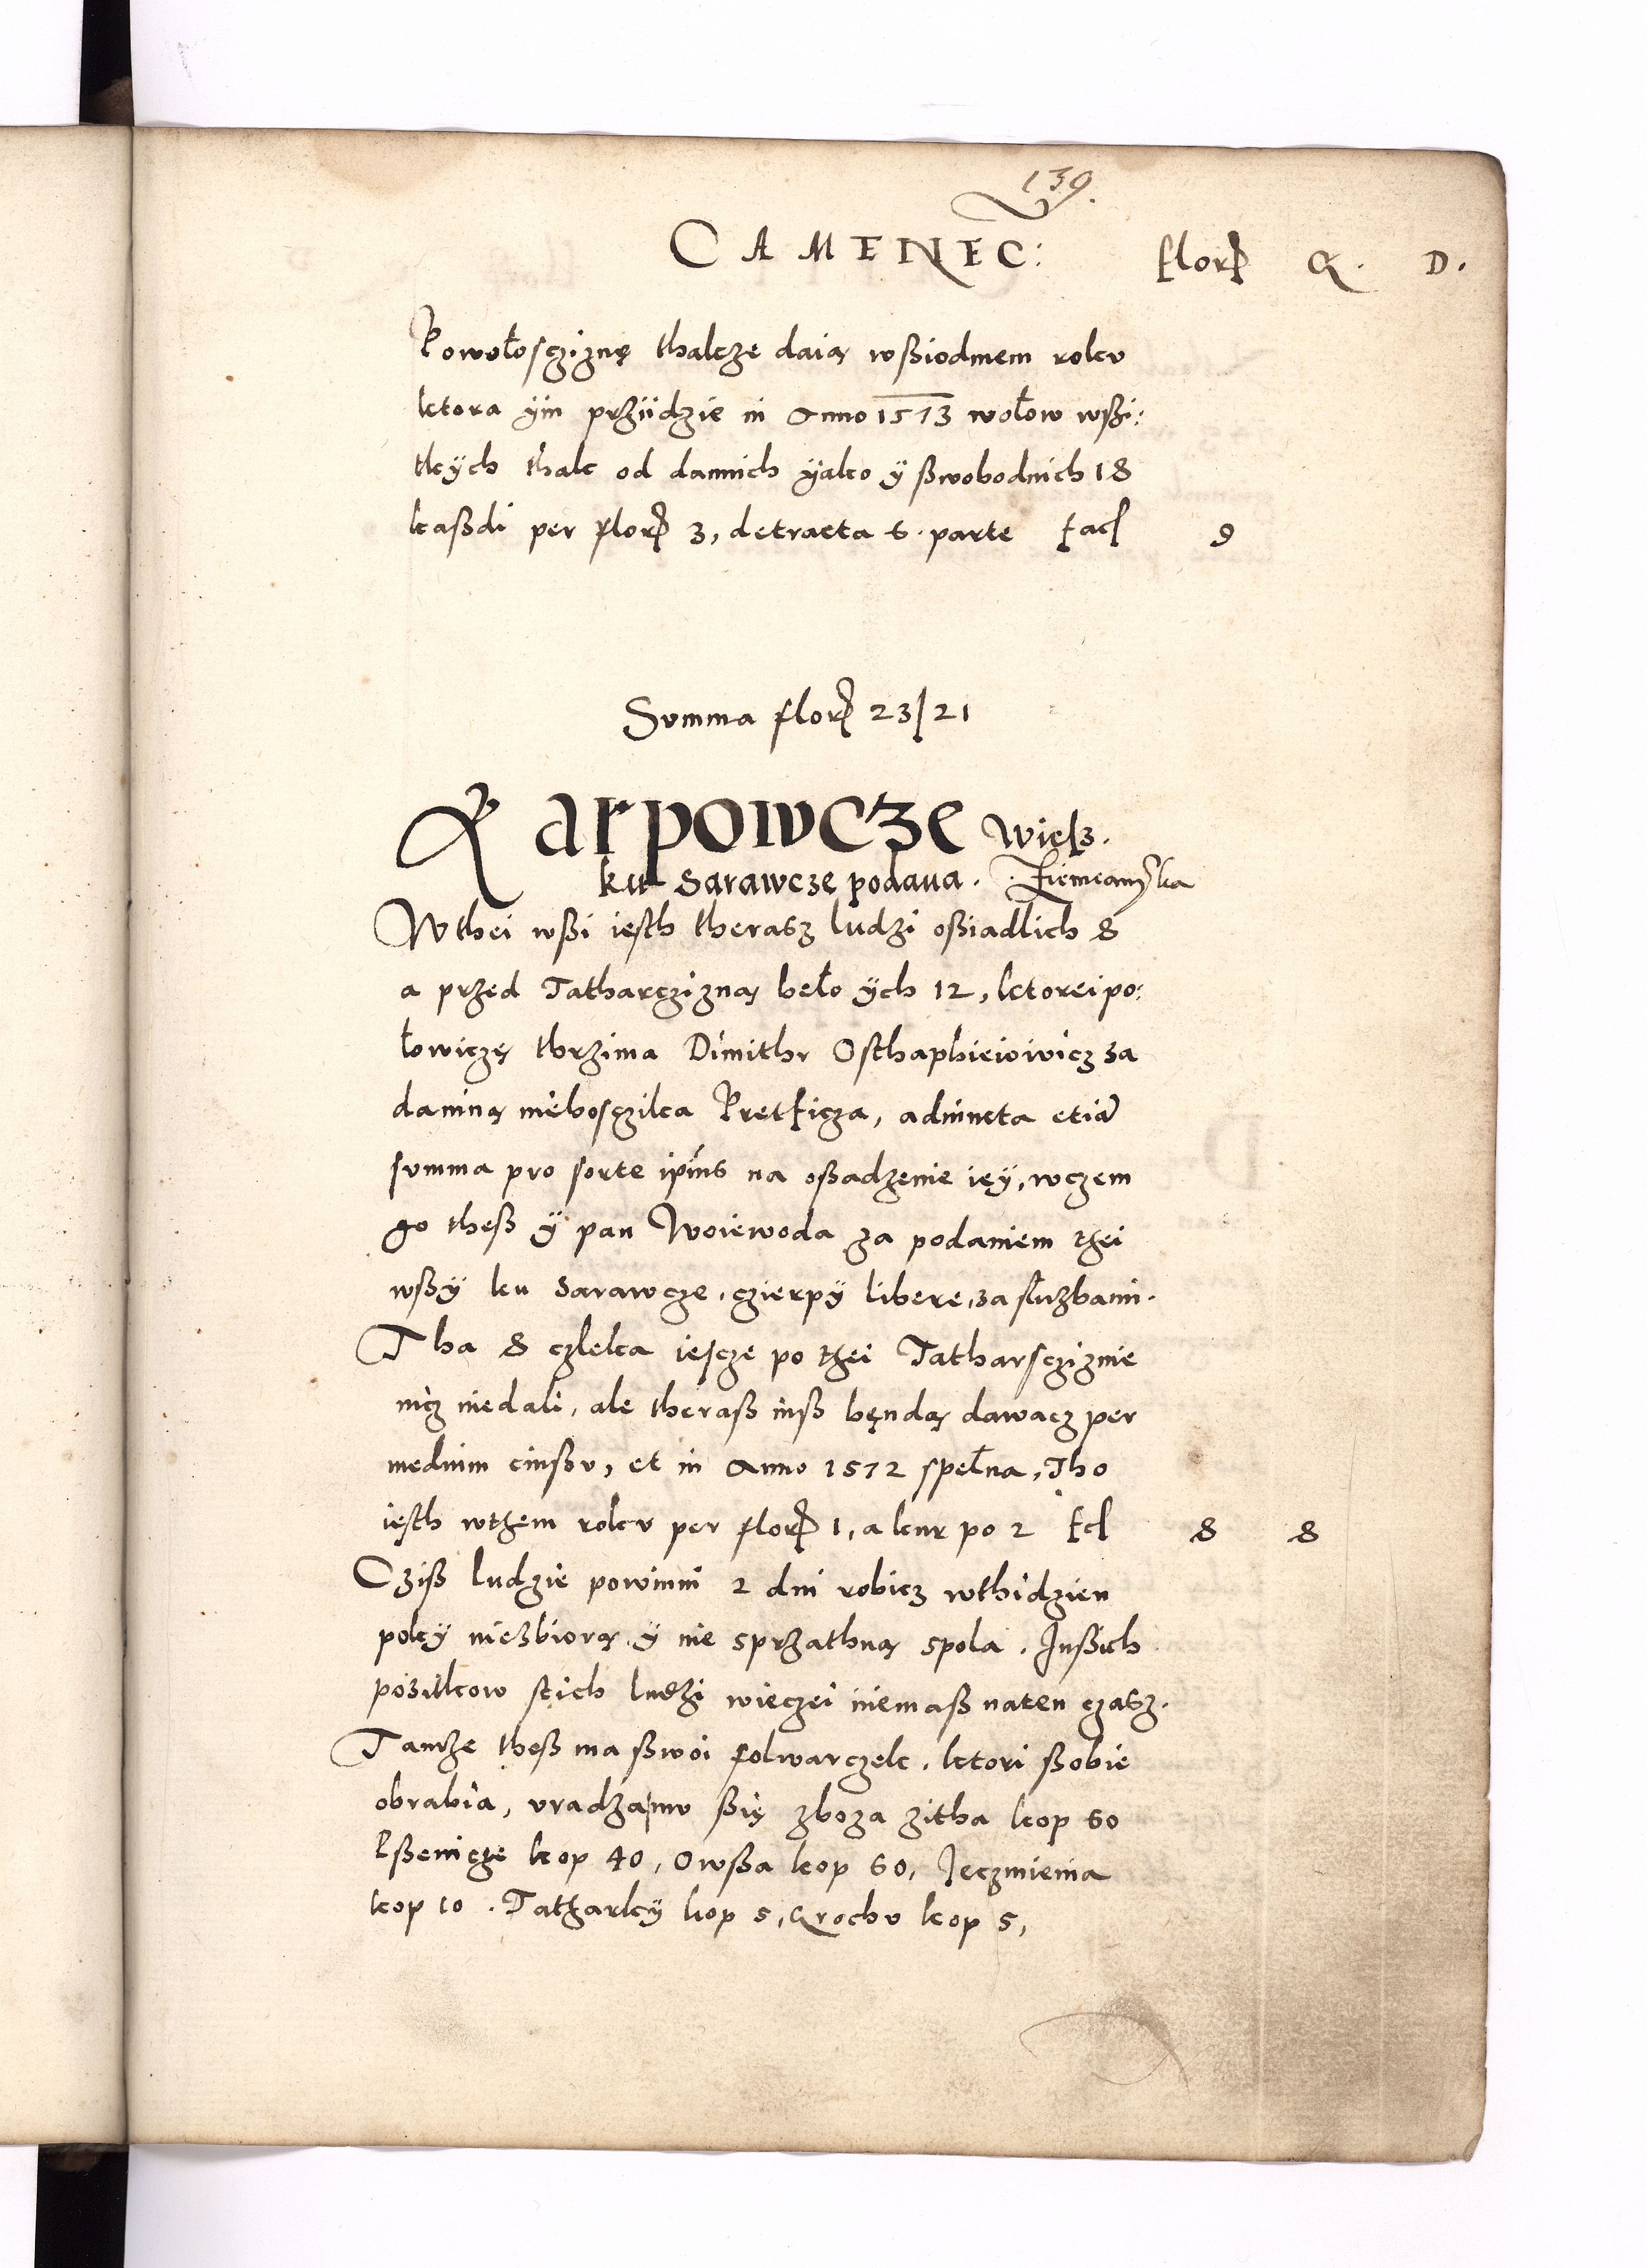 139.
CAMENEC: flor G. D.
Powołoscziznę thakze daią wssiodmem roku
ktora ÿm prziidzie in Anno 1573 wołow wszi:
tkych thak od dannich ÿako ÿ sswobodnich 18
kassdi per flor 3, detracta 6. parte fac 9
Summa flor 23/21
Karpowcze wiesz.
ku Sarawcze podana. Ziemeanska
W thei wssi iesth therasz ludzi ossiadlich 8
a przed Tatharczizną beło ÿch 12, ktorei po:
łowiczę thrzima Dimithr Osthaphieiowicz za
daniną niebosczika Pretficza, adiuncta etiā
summa pro sorte ipius na ossadzenie ieÿ, wczem
go thess ÿ pan Woiewoda za podaniem thei
wssÿ ku Sarawcze, czierpÿ libere, za służbami.
Tha 8 człeka iescze po thei Tatharscziznie
nicz niedali, ale therass iuss będą dawacz per
medium cinssu, et in Anno 1572 spełna, Tho
iesth wthem roku per flor 1, a kur po 2 fac 8 8
Cziss ludzie powinni 2 dni robicz wthidzien
poky niezbiorą ÿ nie sprzathną spola. Inssich
pozitkow stich ludzi wieczei niemass naten czasz.
Tamże thess ma sswoi folwarczek, ktori ssobie
obrabia, uradzamu ssię zboza zitha kop 60
Pssenicze kop 40, Owssa kop 60, Jeczmienia
kop 10. Tatharkÿ kop 5, Grochu kop 5,